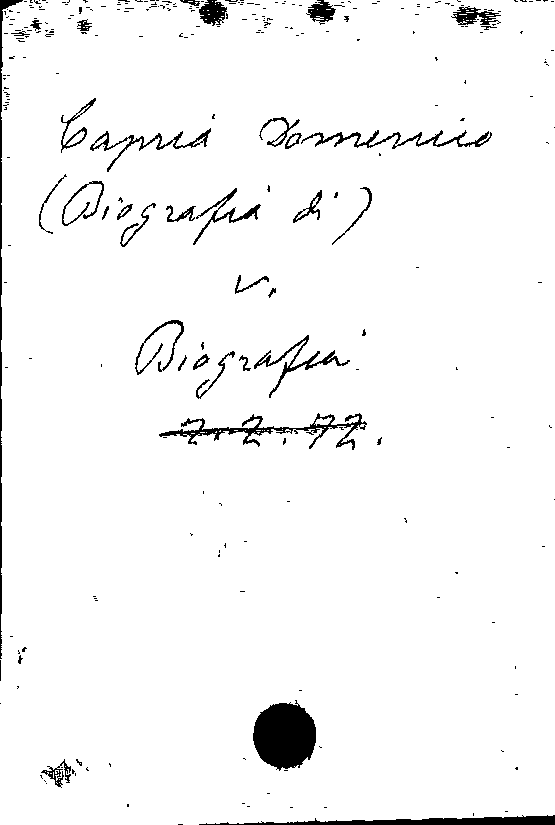 Capria Domenico
(Biografia di)
v.
Biografia
Z.Z.72.